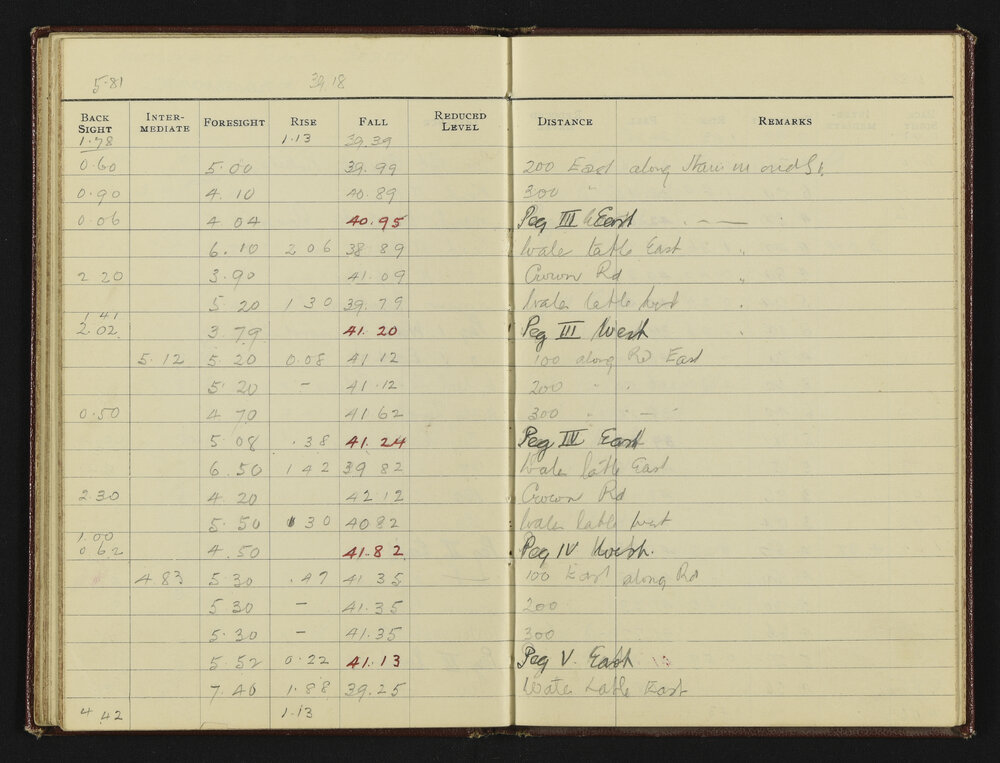 5.81 39.18
BACK SIGHT INTER-MEDIATE FORESIGHT RISE FALL REDUCED LEVEL DISTANCE REMARKS
1.78 1.13 39.39
0.60 5.00 39.99 200 East along
0.90 4.10 40.89 300 "
0.06 4.04 40.95 Peg III East
6.10 2.06 38 89 Water table East "
2 20 3.90 41.09 Crown Rd "
5.20 1 30 39.79 Water table West "
1 41
2.02 3.79 41.20 Peg III West "
5.12 5.20 0.08 41 12 100 along Rd East
5.20 – 41.12 200 " "
0.50 4 70 41 62 300 " — "
5.08 .38 41.24 Peg IV East
6.50 1 42 39 82 Water table East
2.30 4.20 42.12 Crown Rd
5.50 1 30 40 82 Water table West
1.00
0.62 4.50 41.82 Peg IV West.
4.83 5.30 .47 41 35 100 East along Rd
5 30 – 41.35 200
5.30 – 41.35 300
5.52 0.22 41.13 Peg V East
7.40 1.88 39.25 Water table East
4 42 1.13